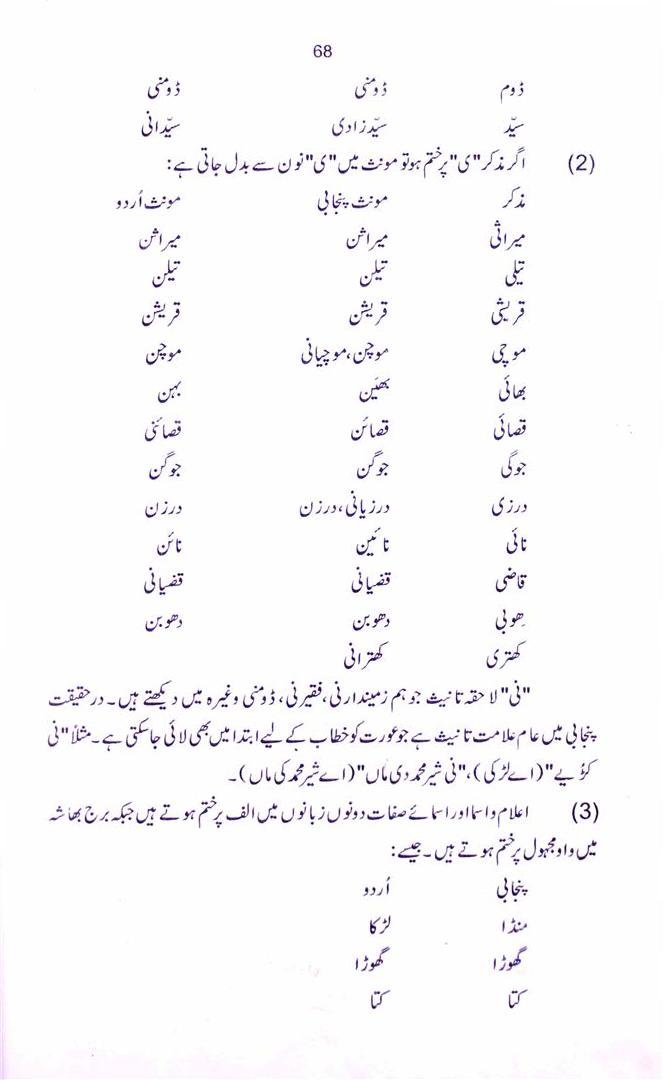 68
ڈوم ڈومنی ڈومنی
سیّد سیّدزادی سیّدانی
(2) اگر مذکر "ی" پر ختم ہو تو مونث میں "ی" نون سے بدل جاتی ہے:
مذکر مونث پنجابی مونث اُردو
میراثی میراثن میراثن
تیلی تیلن تیلن
قریشی قریشن قریشن
موچی موچن، موچیانی موچن
بھائی بھَین بہن
قصائی قصائن قصائنی
جوگی جوگن جوگن
درزی درزیانی، درزن درزن
نائی نائین نائن
قاضی قضیانی قضیانی
ھوبی دھوبن دھوبن
کھتری کھترانی
"نی" لاحقہ تانیث جو ہم زمیندارنی، فقیرنی، ڈومنی وغیرہ میں دیکھتے ہیں۔ درحقیقت
پنجابی میں عام علامت تانیث ہے جو عورت کو خطاب کے لیے ابتدا میں بھی لائی جاسکتی ہے۔ مثلاً "نی
کڑیے" (اے لڑکی)، "نی شیر محمد دی ماں" (اے شیر محمد کی ماں)۔
(3) اعلام و اسما اور اسمائے صفات دونوں زبانوں میں الف پر ختم ہوتے ہیں جبکہ برج بھاشہ
میں واو مجہول پر ختم ہوتے ہیں۔ جیسے:
پنجابی اُردو
منڈا لڑکا
گھوڑا گھوڑا
کتا کتا